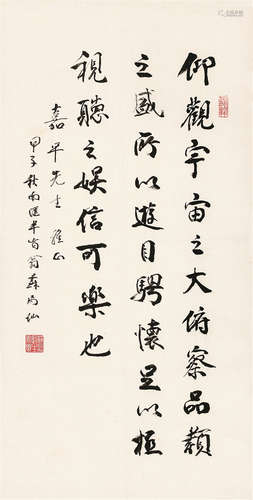 仰觀宇宙之大俯察品類
之盛所以遊目騁懷足以極
視聽之娛信可樂也
嘉平先生雅正
甲子秋南